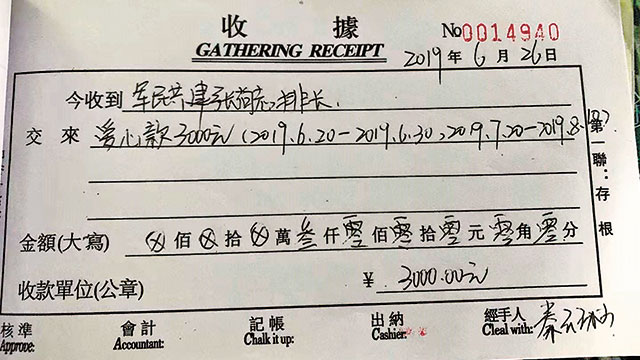 收 據 No0014940
GATHERING RECEIPT 2019年6月26日
今收到 军民共建张 排长.
交來 爱心款3000元(2019.6.20-2019.6.30,2019.7.20-2019.8.10)
金額(大寫) ⊗佰⊗拾⊗萬叁仟零佰零拾零元零角零分
收款單位(公章) ¥ 3000.00元
第一聯:存根
核準 會計 記帳 出納 經手人 秦
Approve: Accountant: Chalk it up: Cashier: Cleal with: